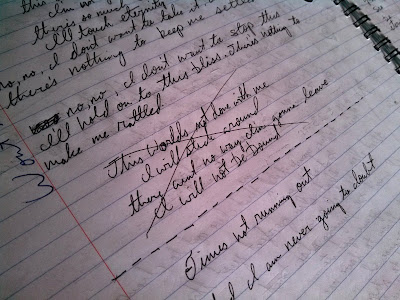 this I'm
this is so much
I'll touch eternity
no, no, I dont want to take it
there's nothing to keep me settle
no, no, I dont want to stop this
I'll hold on to this bliss. There's nothing to
make me rattled
This Worlds not done with me
I will stick around
they aint no way I'm gonna leave
I will not be
Times not running out
I am never going to doubt